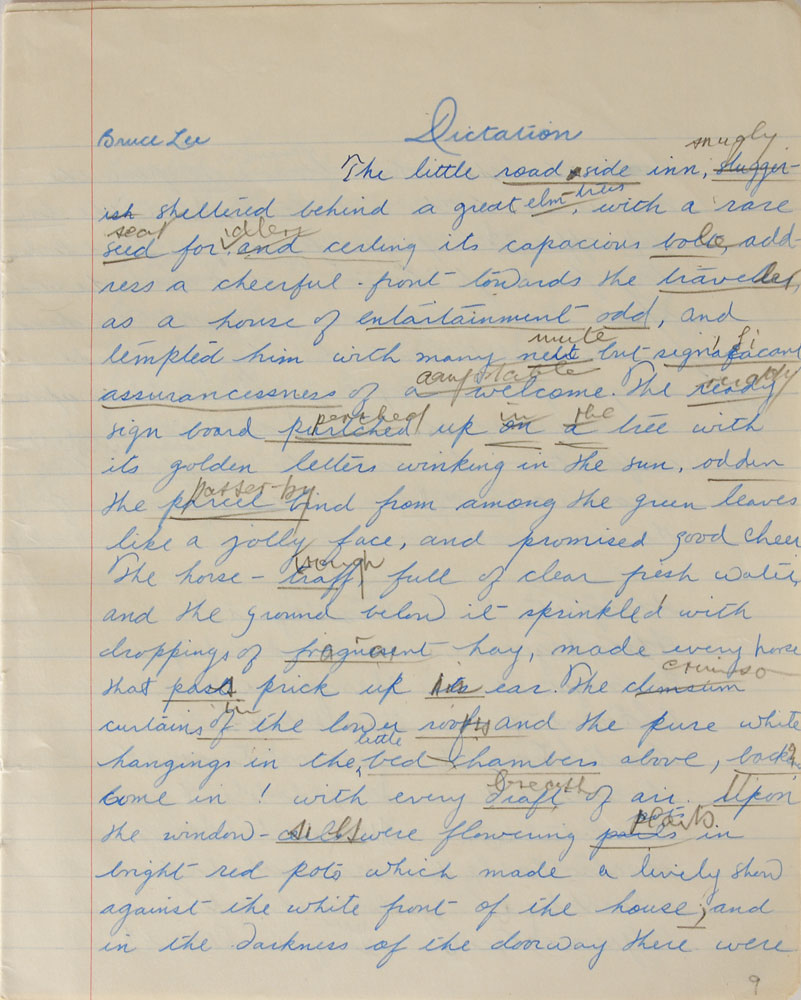 Bruce Lee
Dictation
snugly
The little road side inn, slugger-
elm-trees
ish sheltered behind a great with a rare
seat idlers
seed for and cerling its capacious add-
ress a cheerful front towards the traveller,
as a house of entartainment odd, and
mute
tempted him with many but
comfortable ruddy
assurancessness of a welcome. The ready
perched in the
sign board up on a tree with
its golden letters winking in the sun, odden
passer-by
the parcel bind from among the green leaves
like a jolly face, and promised good cheer
trough
The horse- traff, full of clear fresh water,
and the ground below it sprinkled with
droppings of fragrant hay, made every horse
crimson
that past prick up its ear. The
in
curtains of the lower roofs and the pure white
little
hangings in the bed chambers above,
breath
come in! with every draft of air. Upon
sills plants.
the window- were flowering in
bright red pots which made a lively show
against the white front of the house; and
in the darkness of the doorway there were
9